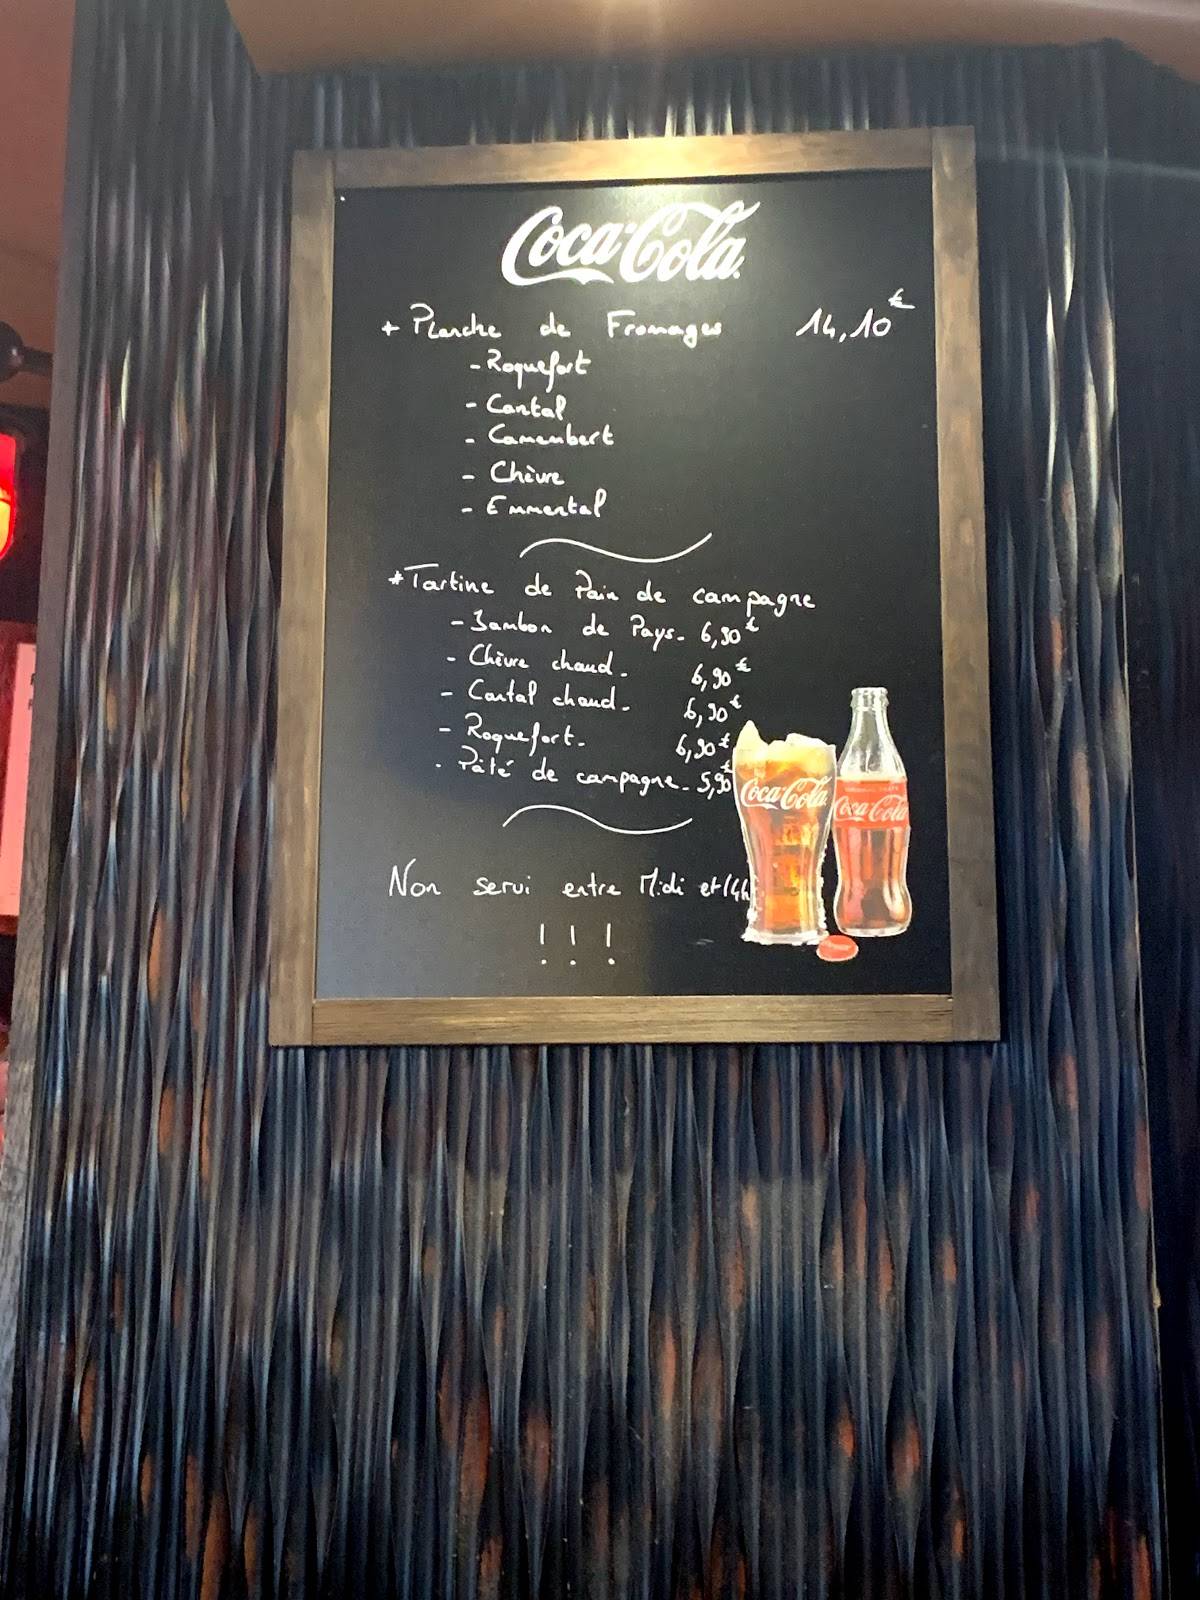 Coca-Cola
+ Planche de Fromages 14,10€
- Roquefort
- Cantal
- Camembert
- Chèvre
- Emmental
* Tartine de Pain de campagne
- Jambon de Pays. 6,90€
- Chèvre chaud. 6,90€
- Cantal chaud. 6,90€
- Roquefort. 6,90€
- Pâté de campagne. 5,90€
Coca-Cola
Coca-Cola
Non servi entre Midi et 14h
! ! !